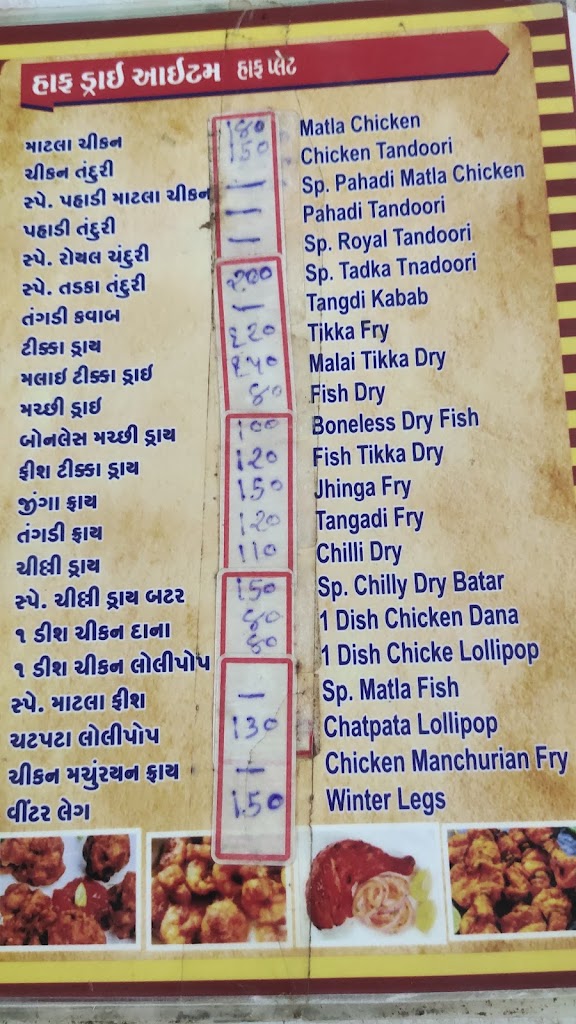 હાફ ડ્રાઇ આઇટમ હાફ પ્લેટ
માટલા ચીકન 180 Matla Chicken
ચીકન તંદુરી 150 Chicken Tandoori
સ્પે. પહાડી માટલા ચીકન — Sp. Pahadi Matla Chicken
પહાડી તંદુરી — Pahadi Tandoori
સ્પે. રોયલ ચંદુરી — Sp. Royal Tandoori
સ્પે. તડકા તંદુરી 200 Sp. Tadka Tnadoori
તંગડી કવાબ — Tangdi Kabab
ટીક્કા ડ્રાય 220 Tikka Fry
મલાઇ ટીક્કા ડ્રાઇ 240 Malai Tikka Dry
મચ્છી ડ્રાઇ 80 Fish Dry
બોનલેસ મચ્છી ડ્રાય 100 Boneless Dry Fish
ફીશ ટીક્કા ડ્રાય 120 Fish Tikka Dry
જીંગા ફ્રાય 150 Jhinga Fry
તંગડી ફ્રાય 120 Tangadi Fry
ચીલ્લી ડ્રાય 110 Chilli Dry
સ્પે. ચીલ્લી ડ્રાય બટર 150 Sp. Chilly Dry Batar
૧ ડીશ ચીકન દાના 80 1 Dish Chicken Dana
૧ ડીશ ચીકન લોલીપોપ 80 1 Dish Chicke Lollipop
સ્પે. માટલા ફીશ — Sp. Matla Fish
ચટપટા લોલીપોપ 130 Chatpata Lollipop
ચીકન મચુંરયન ફ્રાય — Chicken Manchurian Fry
વીંટર લેગ 150 Winter Legs